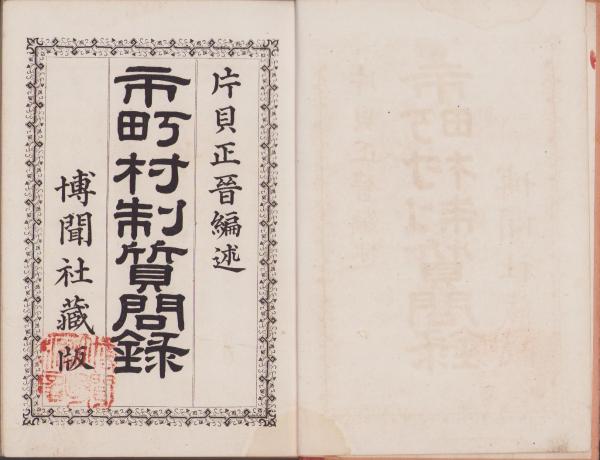 片貝正晉編述
市町村制質問録
博聞社藏版